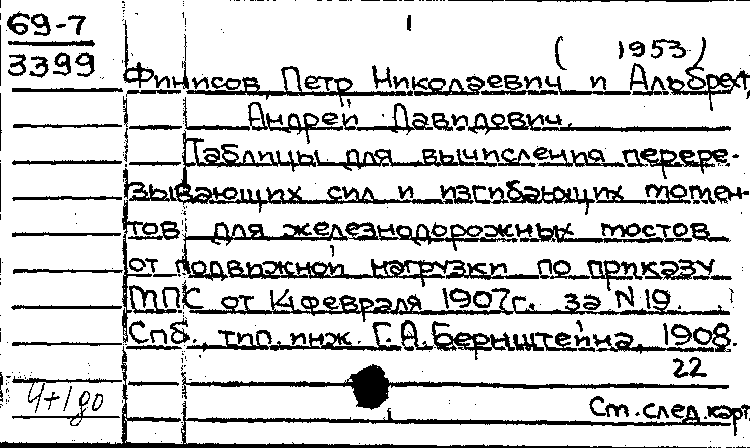 69-7
3399
1
(1953)
Финисов, Петр Николаевич и Альбрехт,
Андрей Давидович.
Таблицы для вычисления перере-
зывающих сил и изгибающих момен-
тов для железнодорожных мостов
от подвижной нагрузки по приказу
МПС от 14 февраля 1907г. за N 19.
Спб., тип. инж. Г.А. Бернштейна, 1908.
22
См. след. карт